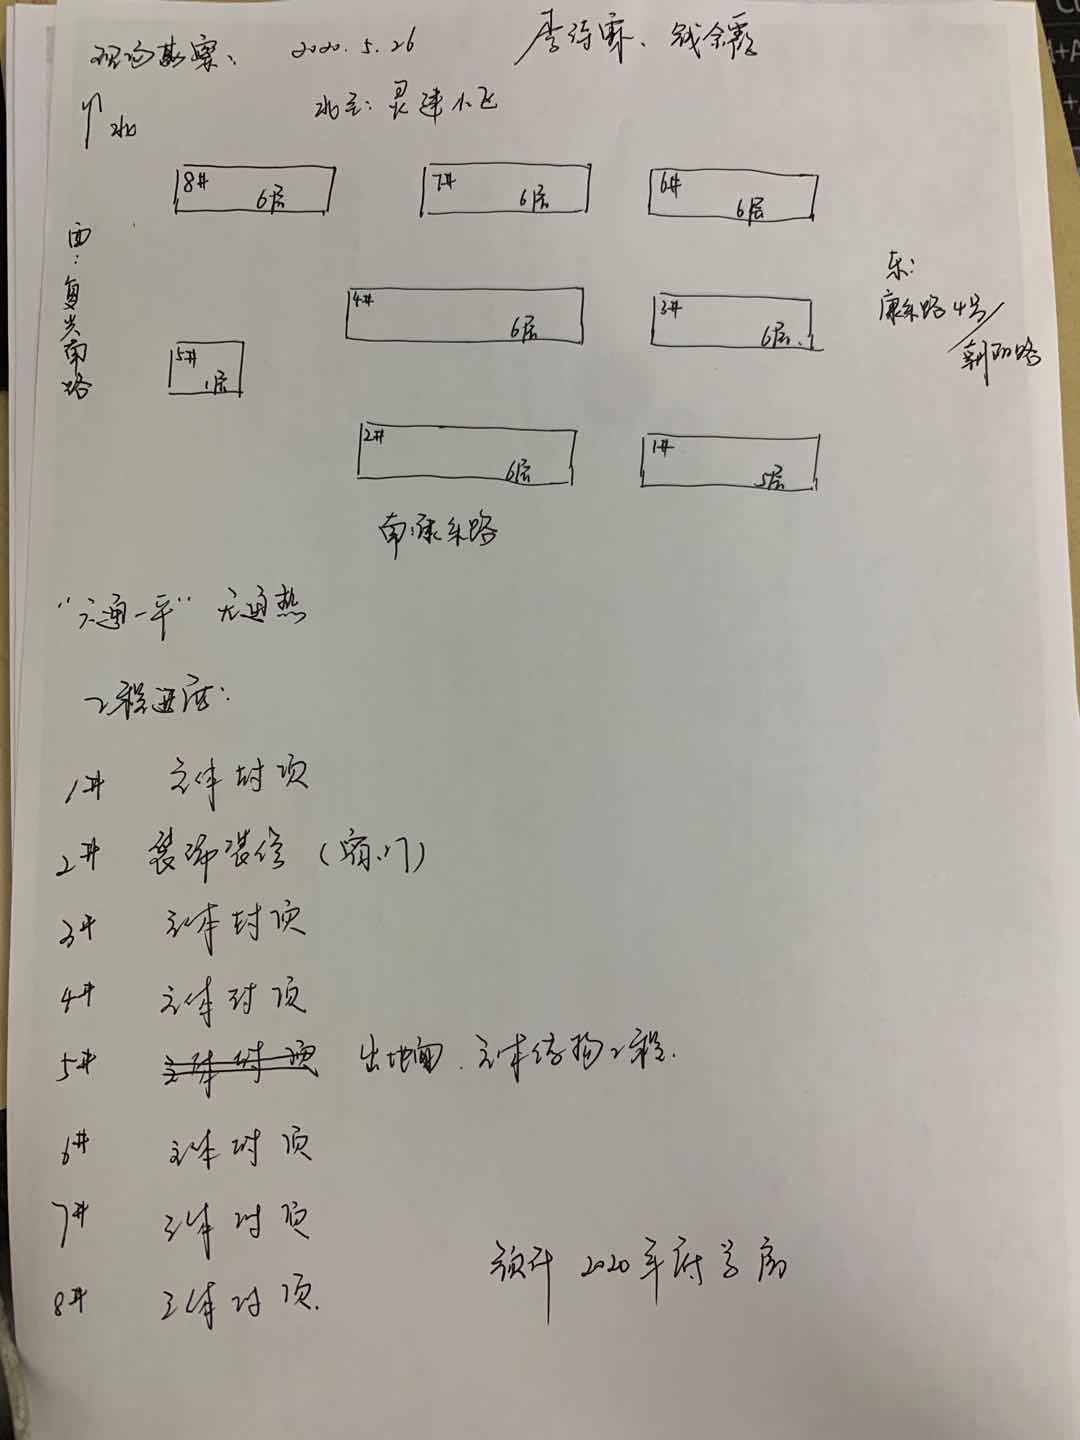 现场勘察: 2020.5.26 李诗霖、钱余霞
北
北至: 灵建小区
8# 6层
7# 6层
6# 6层
西:复兴南路
东:
康乐路4号/
朝阳路
4# 6层
3# 6层
5# 1层
2# 6层
1# 5层
南:康乐路
"六通一平" 无通热
工程进度:
1# 主体封顶
2# 装饰装修(窗、门)
3# 主体封顶
4# 主体封顶
5# 主体封顶 出地面、主体结构工程.
6# 主体封顶
7# 主体封顶
8# 主体封顶.
预计2020年底